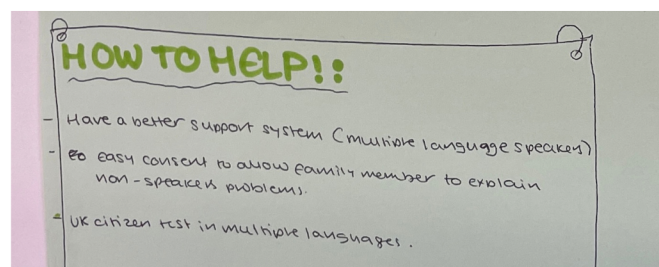 HOW TO HELP!:
- Have a better support system (multiple language speakers)
- easy consent to allow family member to explain
non-speakers problems.
- UK citizen test in multiple languages.